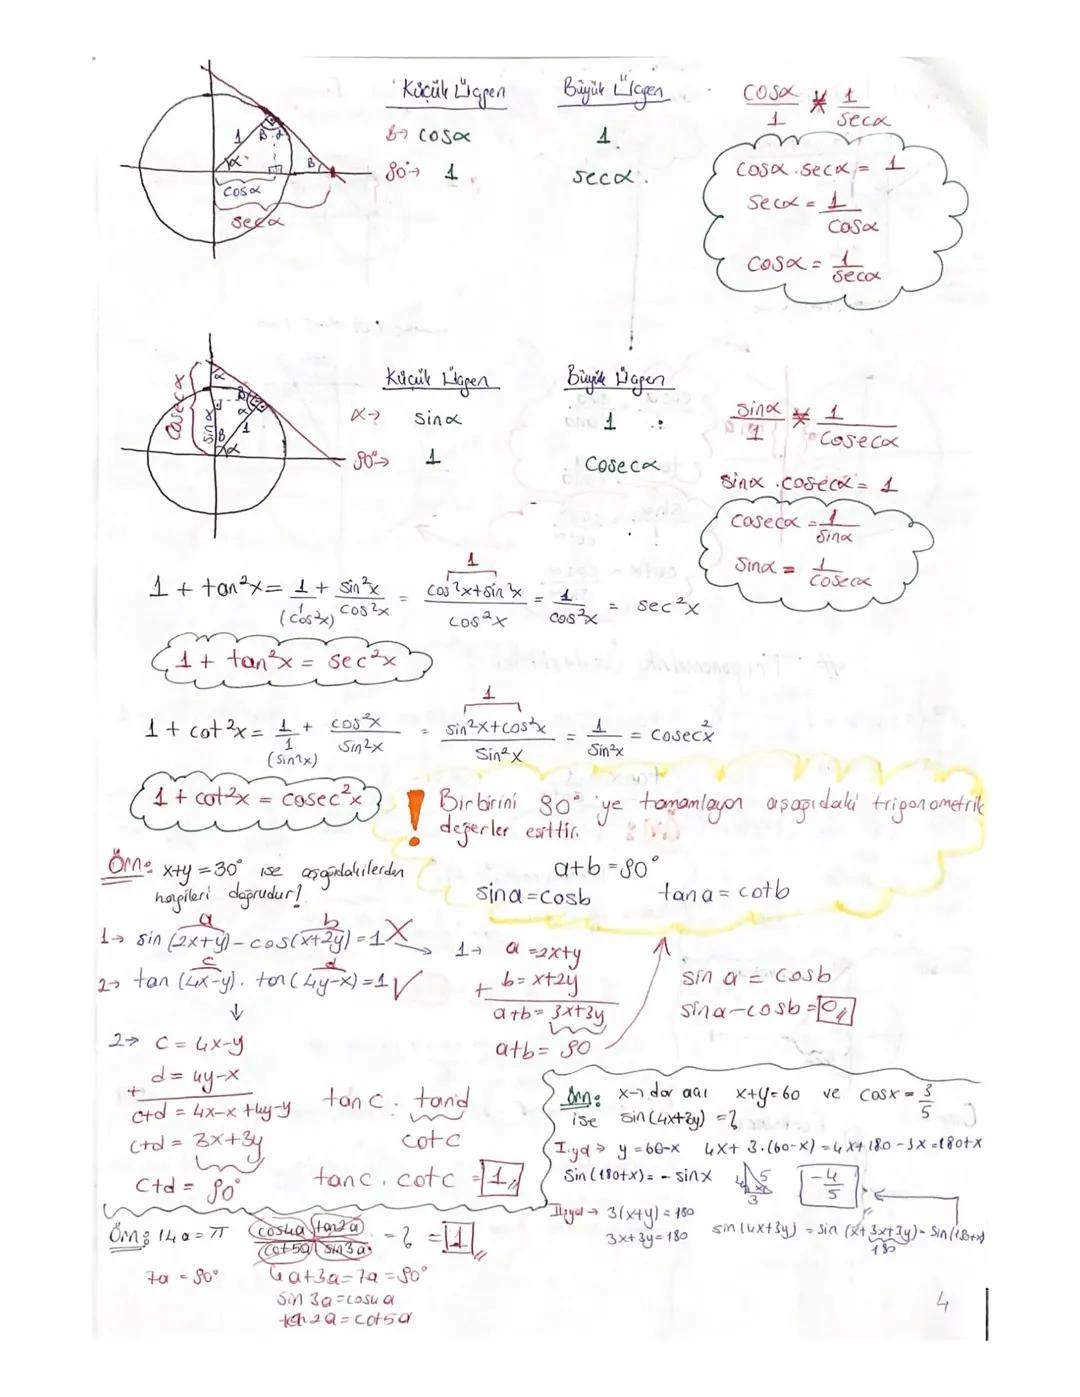 Küçük Üçgen   Büyük Üçgen
B→ cosα   1
90°→ 1   secα
cosα/1 * 1/secα
cosα.secα = 1
secα = 1/cosα
cosα = 1/secα
1
B
α
α
B
cosα
secα
Küçük Üçgen   Büyük Üçgen
α→ sinα   1
90°→ 1   Cosecα
sinα/1 * 1/Cosecα
sinα.cosecα = 1
Cosecα = 1/sinα
Sinα = 1/Cosecα
Cosecα
sinα
α
B
α
1
B
α
1 + tan²x = 1/1 + sin²x/cos²x = cos²x+sin²x/cos²x = 1/cos²x = sec²x
(cos²x)
1
1 + tan²x = sec²x
1 + cot²x = 1/1 + cos²x/sin²x = sin²x+cos²x/Sin²x = 1/Sin²x = cosec²x
(sin²x)
1
1 + cot²x = cosec²x
! Birbirini 90° 'ye tamamlayan aşağıdaki trigonometrik
değerler eşittir.
a+b = 90°
sina = cosb   tana = cotb
Örn: x+y = 30° ise aşağıdakilerden
hangileri doğrudur?
a   b
1→ sin(2x+y) - cos(x+2y) = 1 X
c   d
2→ tan(4x-y). tan(4y-x) = 1 ✓
1→ a = 2x+y
+ b = x+2y
a+b = 3x+3y
a+b = 90
sin a = cosb
sina - cosb = 0//
2→ c = 4x-y
+ d = 4y-x
c+d = 4x-x+4y-y
c+d = 3x+3y
c+d = 90°
tan c . tand
cotc
tanc . cotc = 1//
Örn: x→ dar açı x+y=60 ve cosx = 3/5
ise sin(4x+3y) = ?
I.yol → y = 60-x   4x+3.(60-x) = 4x+180-3x = 180+x
Sin(180+x) = -sinx   4 5 x 3   -4/5
II.yol → 3(x+y) = 180
3x+3y = 180
sin(4x+3y) = sin(x+3x+3y) = Sin(180+x)
180
Örn: 14a = π   cos4a . tan2a / cot5a . sin3a = ? = 1//
7a = 90°   4a+3a = 7a = 90°
Sin 3a = cos4a
tan2a = cot5a
4